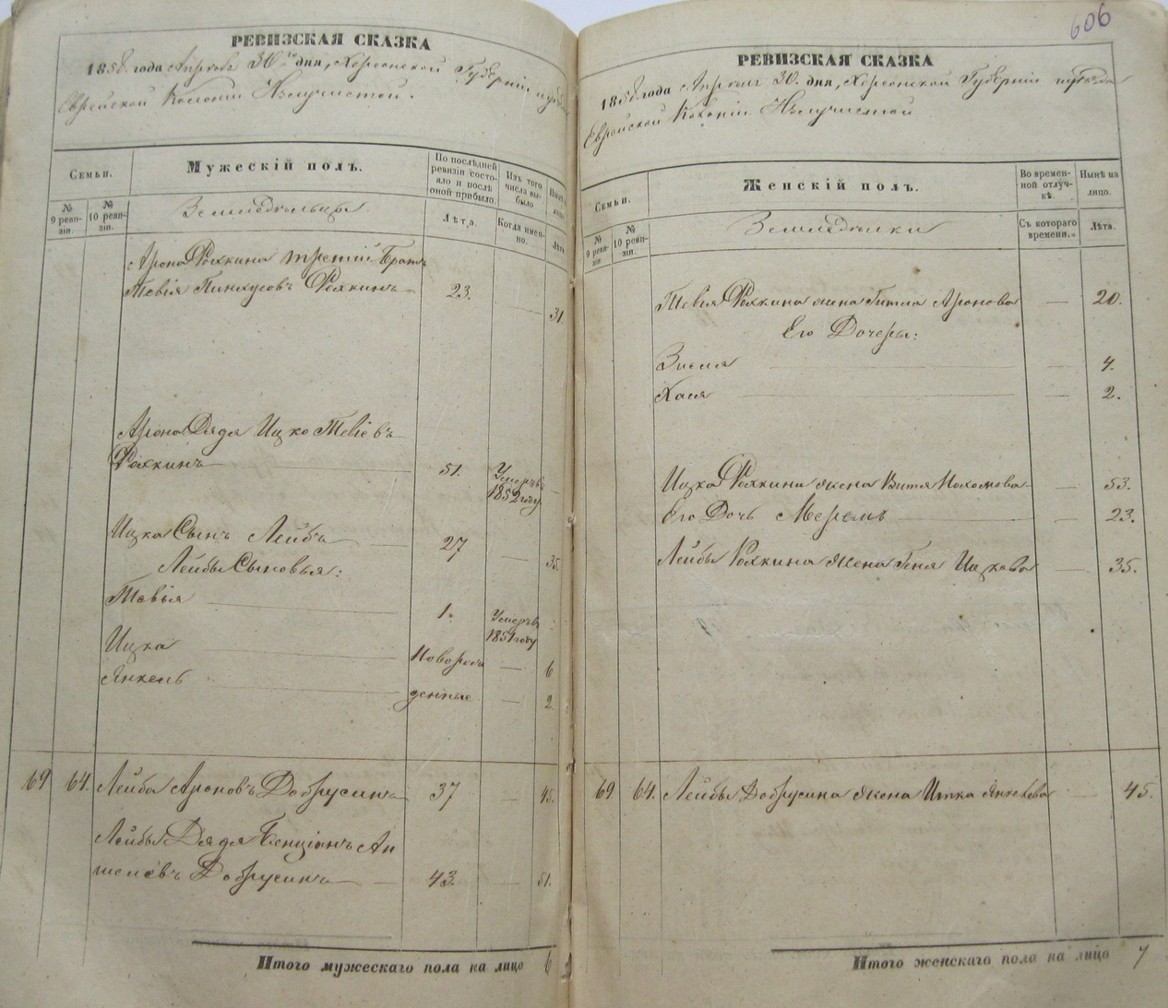 РЕВИЗСКАЯ СКАЗКА
1858 года Апреля 30го дня, Херсонской Губерніи
Еврейской Колоніи Излучистой.
Семьи.
№ 9 ревизіи.
№ 10 ревизіи.
Мужескій полъ.
Земледельцы
По последней ревизіи состояло и после оной прибыло.
Лѣта.
Изъ того числа выбыло
Когда именно.
Лѣта
Арона Рохкина третій братъ
Тевія Пинхусовъ Рохкинъ 23. — 31.
Арона Дядя Ицко Тевіевъ
Рохкинъ 51. Умеръ въ 1852 году —
Ицка Сынъ Лейба 27 — 35.
Лейбы Сыновья:
Тевья 1. Умеръ въ 1851 году
Ицка новорож — 6
Янкель денные — 2
69 64. Лейба Ароновъ Добрусинъ 37 — 45.
Лейбы Дядя Бенціанъ Ан
шелевъ Добрусинъ 43. — 51.
Итого мужескаго пола на лицо 6
606
РЕВИЗСКАЯ СКАЗКА
1858 года Апреля 30. дня, Херсонской Губерніи
Еврейской Колоніи Излучистой
Семьи.
№ 9 ревизіи
№ 10 ревизіи.
Женскій полъ.
Земледелки
Во временной отлучкѣ.
Съ котораго времени.
Нынѣ на лицо.
Лѣта.
Тевья Рохкина жена Гитля Аронова — 20.
Его Дочери:
Зисля — 4.
Хася — 2.
Ицка Рохкина жена Витя Нохомова — 53.
Его Дочь Меремъ — 23.
Лейбы Рохкина жена Геня Ицкова — 35.
69. 64. Лейбы Добрусина жена Итка Янкелева — 45.
Итого женскаго пола на лицо 7